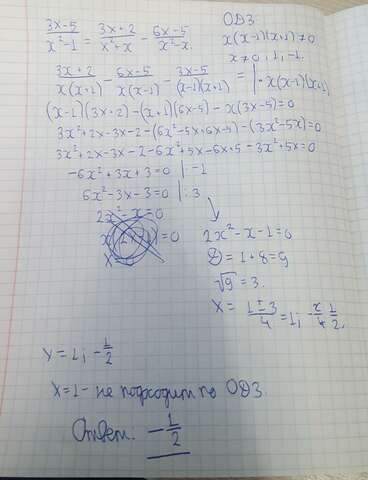 (3x-5)/(x²-1) = (3x+2)/(x²+x) - (6x-5)/(x²-x).
ОДЗ
x(x-1)(x+1)≠0
x≠0, 1, -1.
(3x+2)/(x(x+1)) - (6x-5)/(x(x-1)) - (3x-5)/((x-1)(x+1)) = | · x(x-1)(x+1)
(x-1)(3x+2) - (x+1)(6x-5) - x(3x-5)=0
3x²+2x-3x-2-(6x²-5x+6x-5)-(3x²-5x)=0
3x²+2x-3x-2-6x²+5x-6x+5-3x²+5x=0
-6x²+3x+3=0 | -1
6x²-3x-3=0 | :3
2x²-x=0
2x²-x-1=0
=0
D=1+8=9
√9=3.
x= (1±3)/4 =1; -1/2
x=1; -1/2
x=1- не подходит по ОДЗ.
Ответ: -1/2